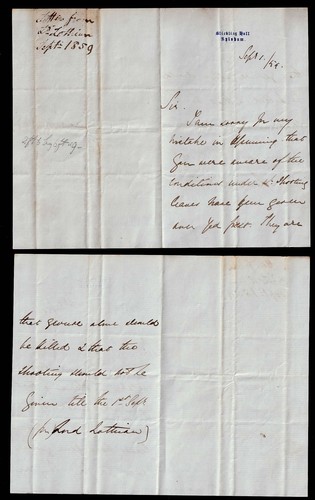 Letter from
Ld Lothian
Sept. 1859
Blickling Hall
Aylsham.
Sept 1./59.
Sir
I am sorry for my
mistake in assuming that
you were aware of the
conditions under wh. shooting
leaves have been given
over
They are
that grouse alone should
be killed & that the
shooting should not be
given till the 1st Sept
(for Lord Lothian)